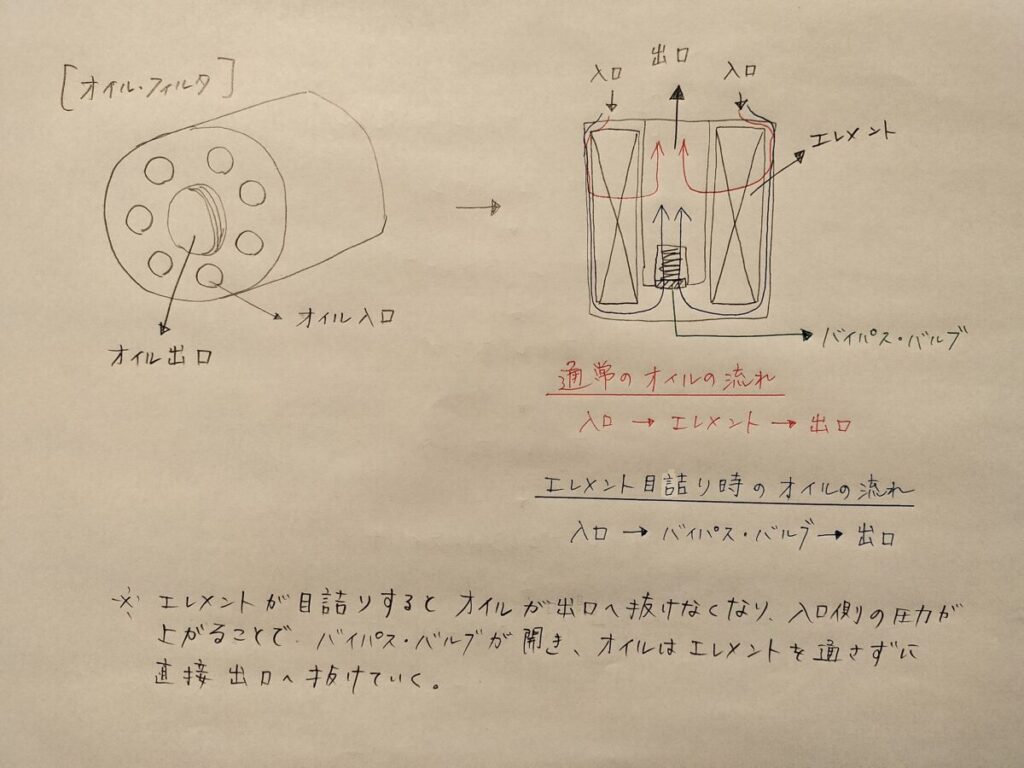 [オイル・フィルタ]
オイル出口
オイル入口
入口
出口
入口
エレメント
バイパス・バルブ
通常のオイルの流れ
入口 → エレメント → 出口
エレメント目詰り時のオイルの流れ
入口 → バイパス・バルブ → 出口
※ エレメントが目詰りすると オイルが出口へ抜けなくなり、入口側の圧力が
上がることで、バイパス・バルブが開き、オイルはエレメントを通さずに
直接出口へ抜けていく。